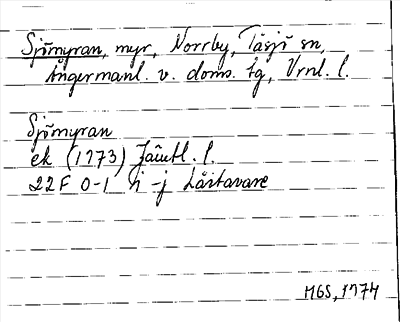 Sjömyran, myr, Norrby, Tåsjö sn,
Ångermanl. v. doms. tg, Vrnl. l.
Sjömyran
ek (1973) Jämtl. l.
22F 0-1 i-j Låstavare
MGS, 1974